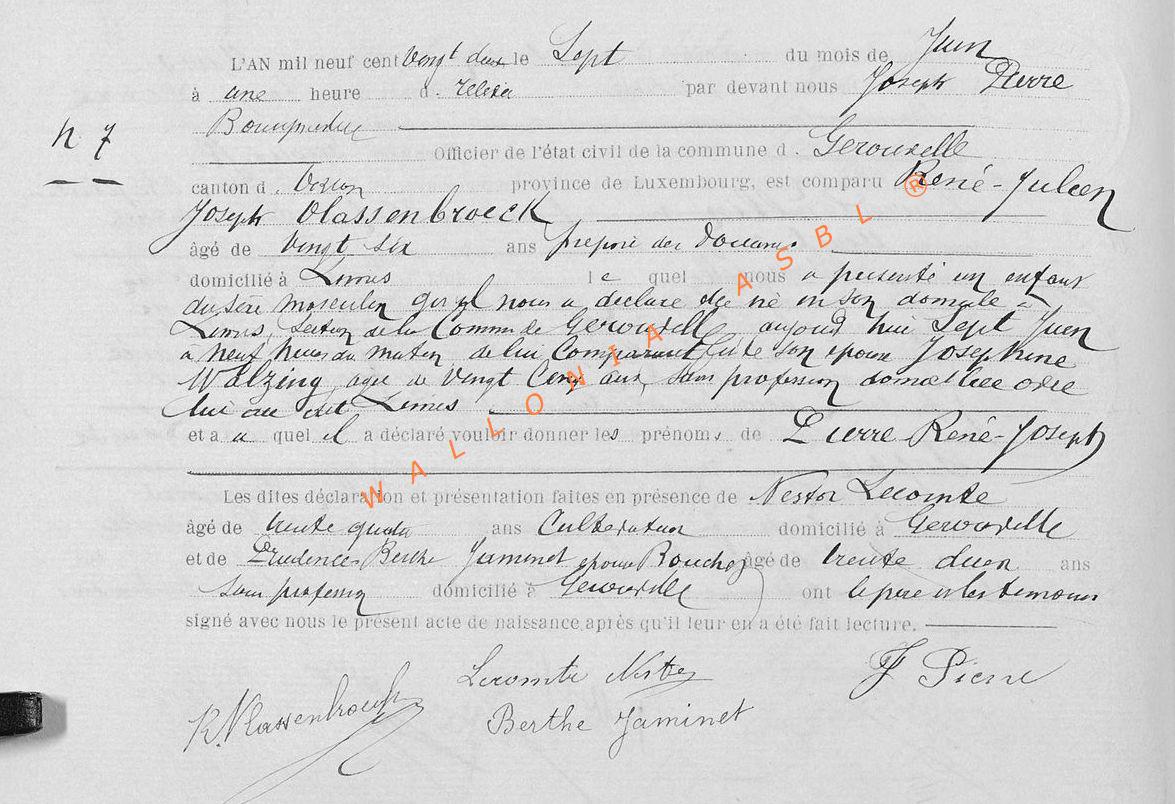 L'AN mil neuf cent Vingt deux le Sept du mois de Juin
à une heure d. relevée par devant nous Joseph Pierre
Bourgmestre
N. 7
Officier de l'état civil de la commune d. Gerouville
canton d. Virton province de Luxembourg, est comparu René-Julien
Joseph Vlassenbroeck
âgé de Vingt six ans préposé des Douanes
domicilié à Limes le quel nous a présenté un enfant
du sexe masculin qu'il nous a déclaré être né en son domicile à
Limes, section de la Commune de Gerouville, aujourd'hui Sept Juin
à neuf heures du matin de lui Comparant et de son épouse Joséphine
Walzing agée de Vingt Cinq ans, sans profession domiciliée avec
lui au dit Limes
et a a quel il a déclaré vouloir donner les prénoms de Pierre-René-Joseph
Les dites déclaration et présentation faites en présence de Nestor Lecomte
âgé de trente quatre ans Cultivateur domicilié à Gerouville
et de Prudence-Berthe Jaminet épouse Bouchez âgé de trente deux ans
sans profession domicilié à Gerouville ont le père et les témoins
signé avec nous le présent acte de naissance après qu'il leur en a été fait lecture.
Lecomte Nestor J Pierre
R. Vlassenbroeck
Berthe Jaminet
WALLONIA ASBL ®